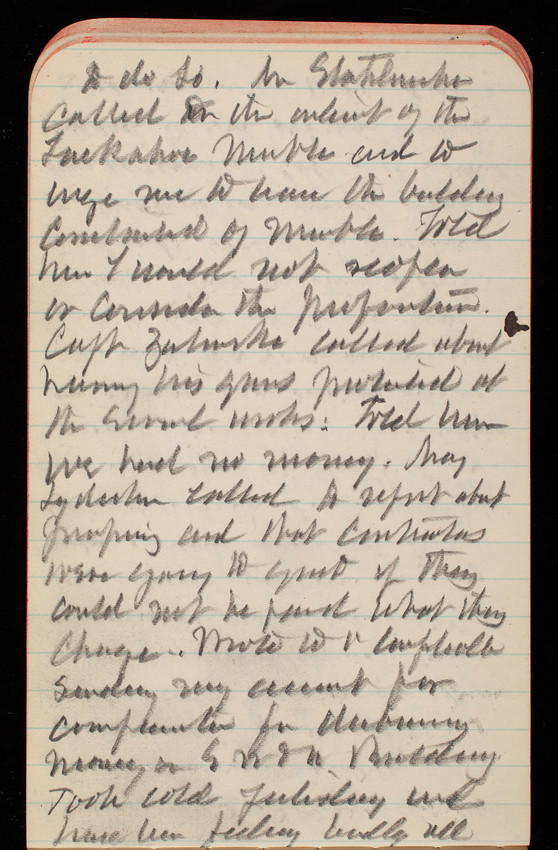 to do so. Mr
called in the interest of the
Tuckahoe Marble and to
urge me to have the building
constructed of Marble. Told
him I would not reopen
or consider the proposition.
Capt Zalinski called about
having his guns protected at
the works. Told him
we had no money. Maj
Lydecker called to report about
pumping and that contractors
were going to quit if they
could not be paid what they
charge. Wrote to 1st Comptroller
sending my account for
compensation for disbursing
money on S W & N Building
Took cold yesterday and
have been feeling badly all